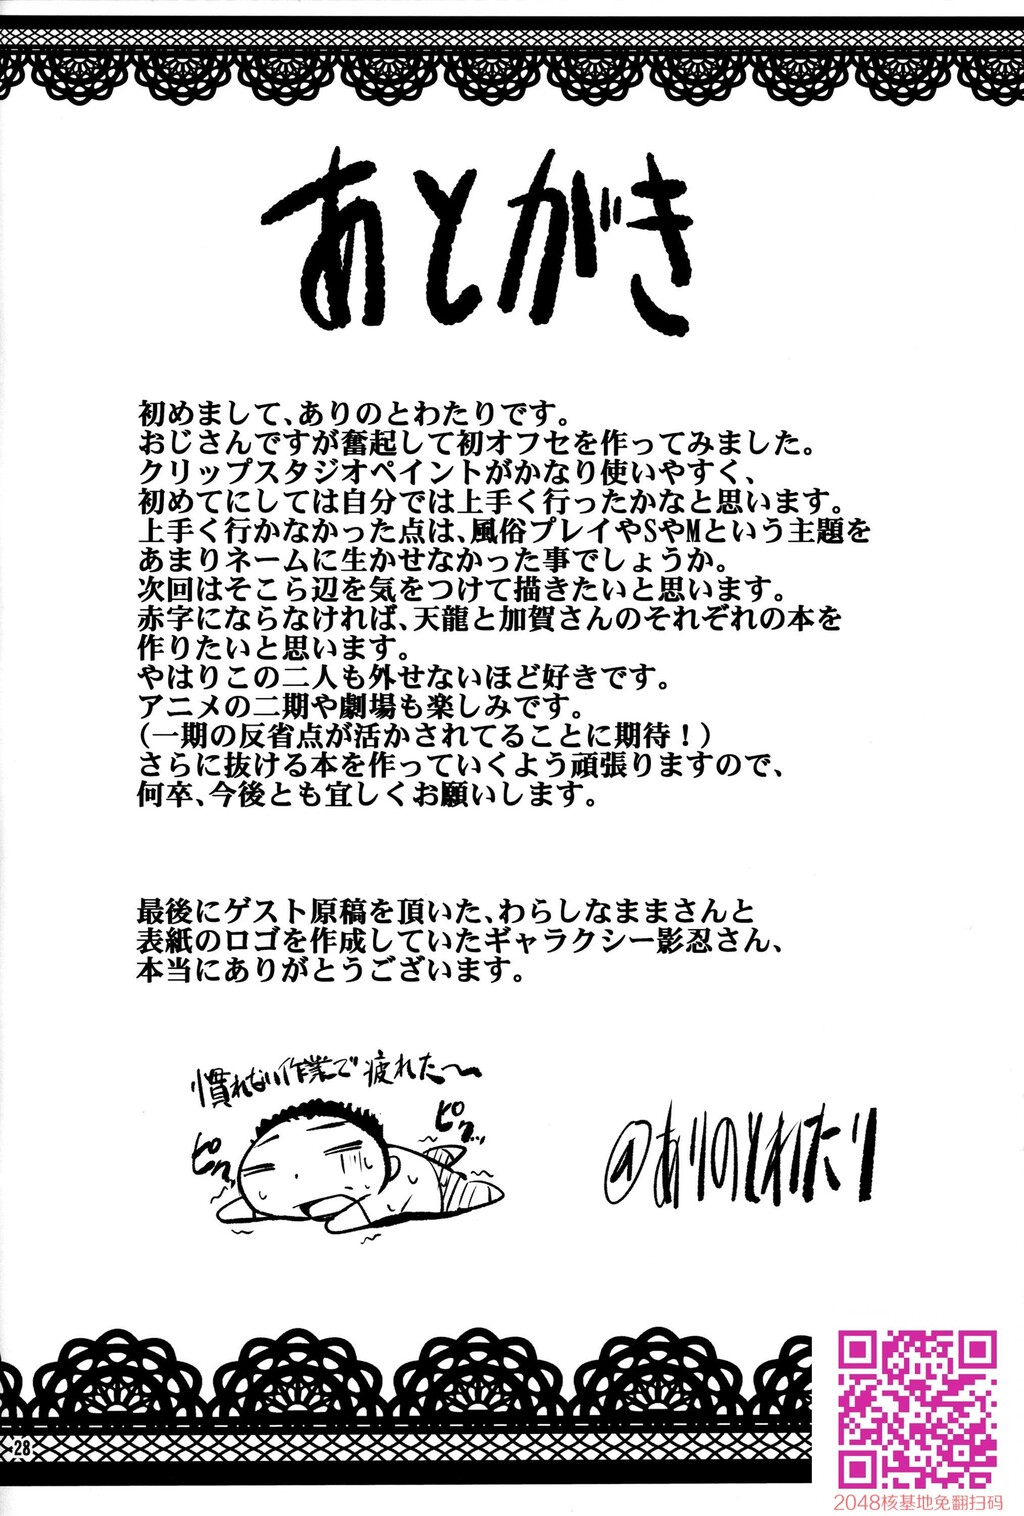 あとがき
初めまして、ありのとわたりです。
おじさんですが奮起して初オフセを作ってみました。
クリップスタジオペイントがかなり使いやすく、
初めてにしては自分では上手く行ったかなと思います。
上手く行かなかった点は、風俗プレイやSやMという主題を
あまりネームに生かせなかった事でしょうか。
次回はそこら辺を気をつけて描きたいと思います。
赤字にならなければ、天龍と加賀さんのそれぞれの本を
作りたいと思います。
やはりこの二人も外せないほど好きです。
アニメの二期や劇場も楽しみです。
(一期の反省点が活かされてることに期待！)
さらに抜ける本を作っていくよう頑張りますので、
何卒、今後とも宜しくお願いします。
最後にゲスト原稿を頂いた、わらしなままさんと
表紙のロゴを作成していたギャラクシー影忍さん、
本当にありがとうございます。
慣れない作業で疲れた〜
ピクッ
ピクッ
@ありのとわたり
28
2048核基地免翻扫码